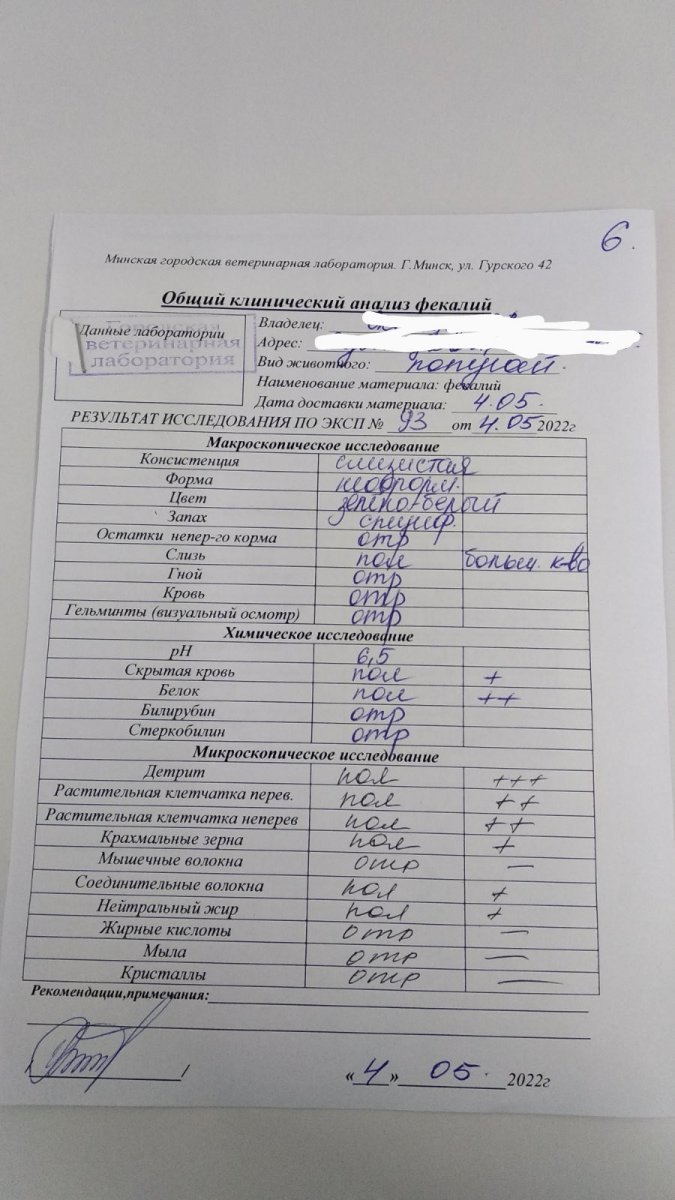 6.
Минская городская ветеринарная лаборатория. Г.Минск, ул. Гурского 42
Общий клинический анализ фекалий
Данные лаборатории
Городская
ветеринарная
лаборатория
Владелец:
Адрес:
Вид животного: попугай.
Наименование материала: фекалий
Дата доставки материала: 4.05.
РЕЗУЛЬТАТ ИССЛЕДОВАНИЯ ПО ЭКСП № 93 от 4.05 2022г
Макроскопическое исследование
Консистенция слизистая
Форма неоформ.
Цвет зелено-белый
Запах специф.
Остатки непер-го корма отр
Слизь пол больш. к-во
Гной отр
Кровь отр
Гельминты (визуальный осмотр) отр
Химическое исследование
pH 6,5
Скрытая кровь пол +
Белок пол ++
Билирубин отр
Стеркобилин отр
Микроскопическое исследование
Детрит пол +++
Растительная клетчатка перев. пол ++
Растительная клетчатка неперев пол ++
Крахмальные зерна пол +
Мышечные волокна отр —
Соединительные волокна пол +
Нейтральный жир пол +
Жирные кислоты отр —
Мыла отр —
Кристаллы отр —
Рекомендации,примечания:
/
«4» 05. 2022г